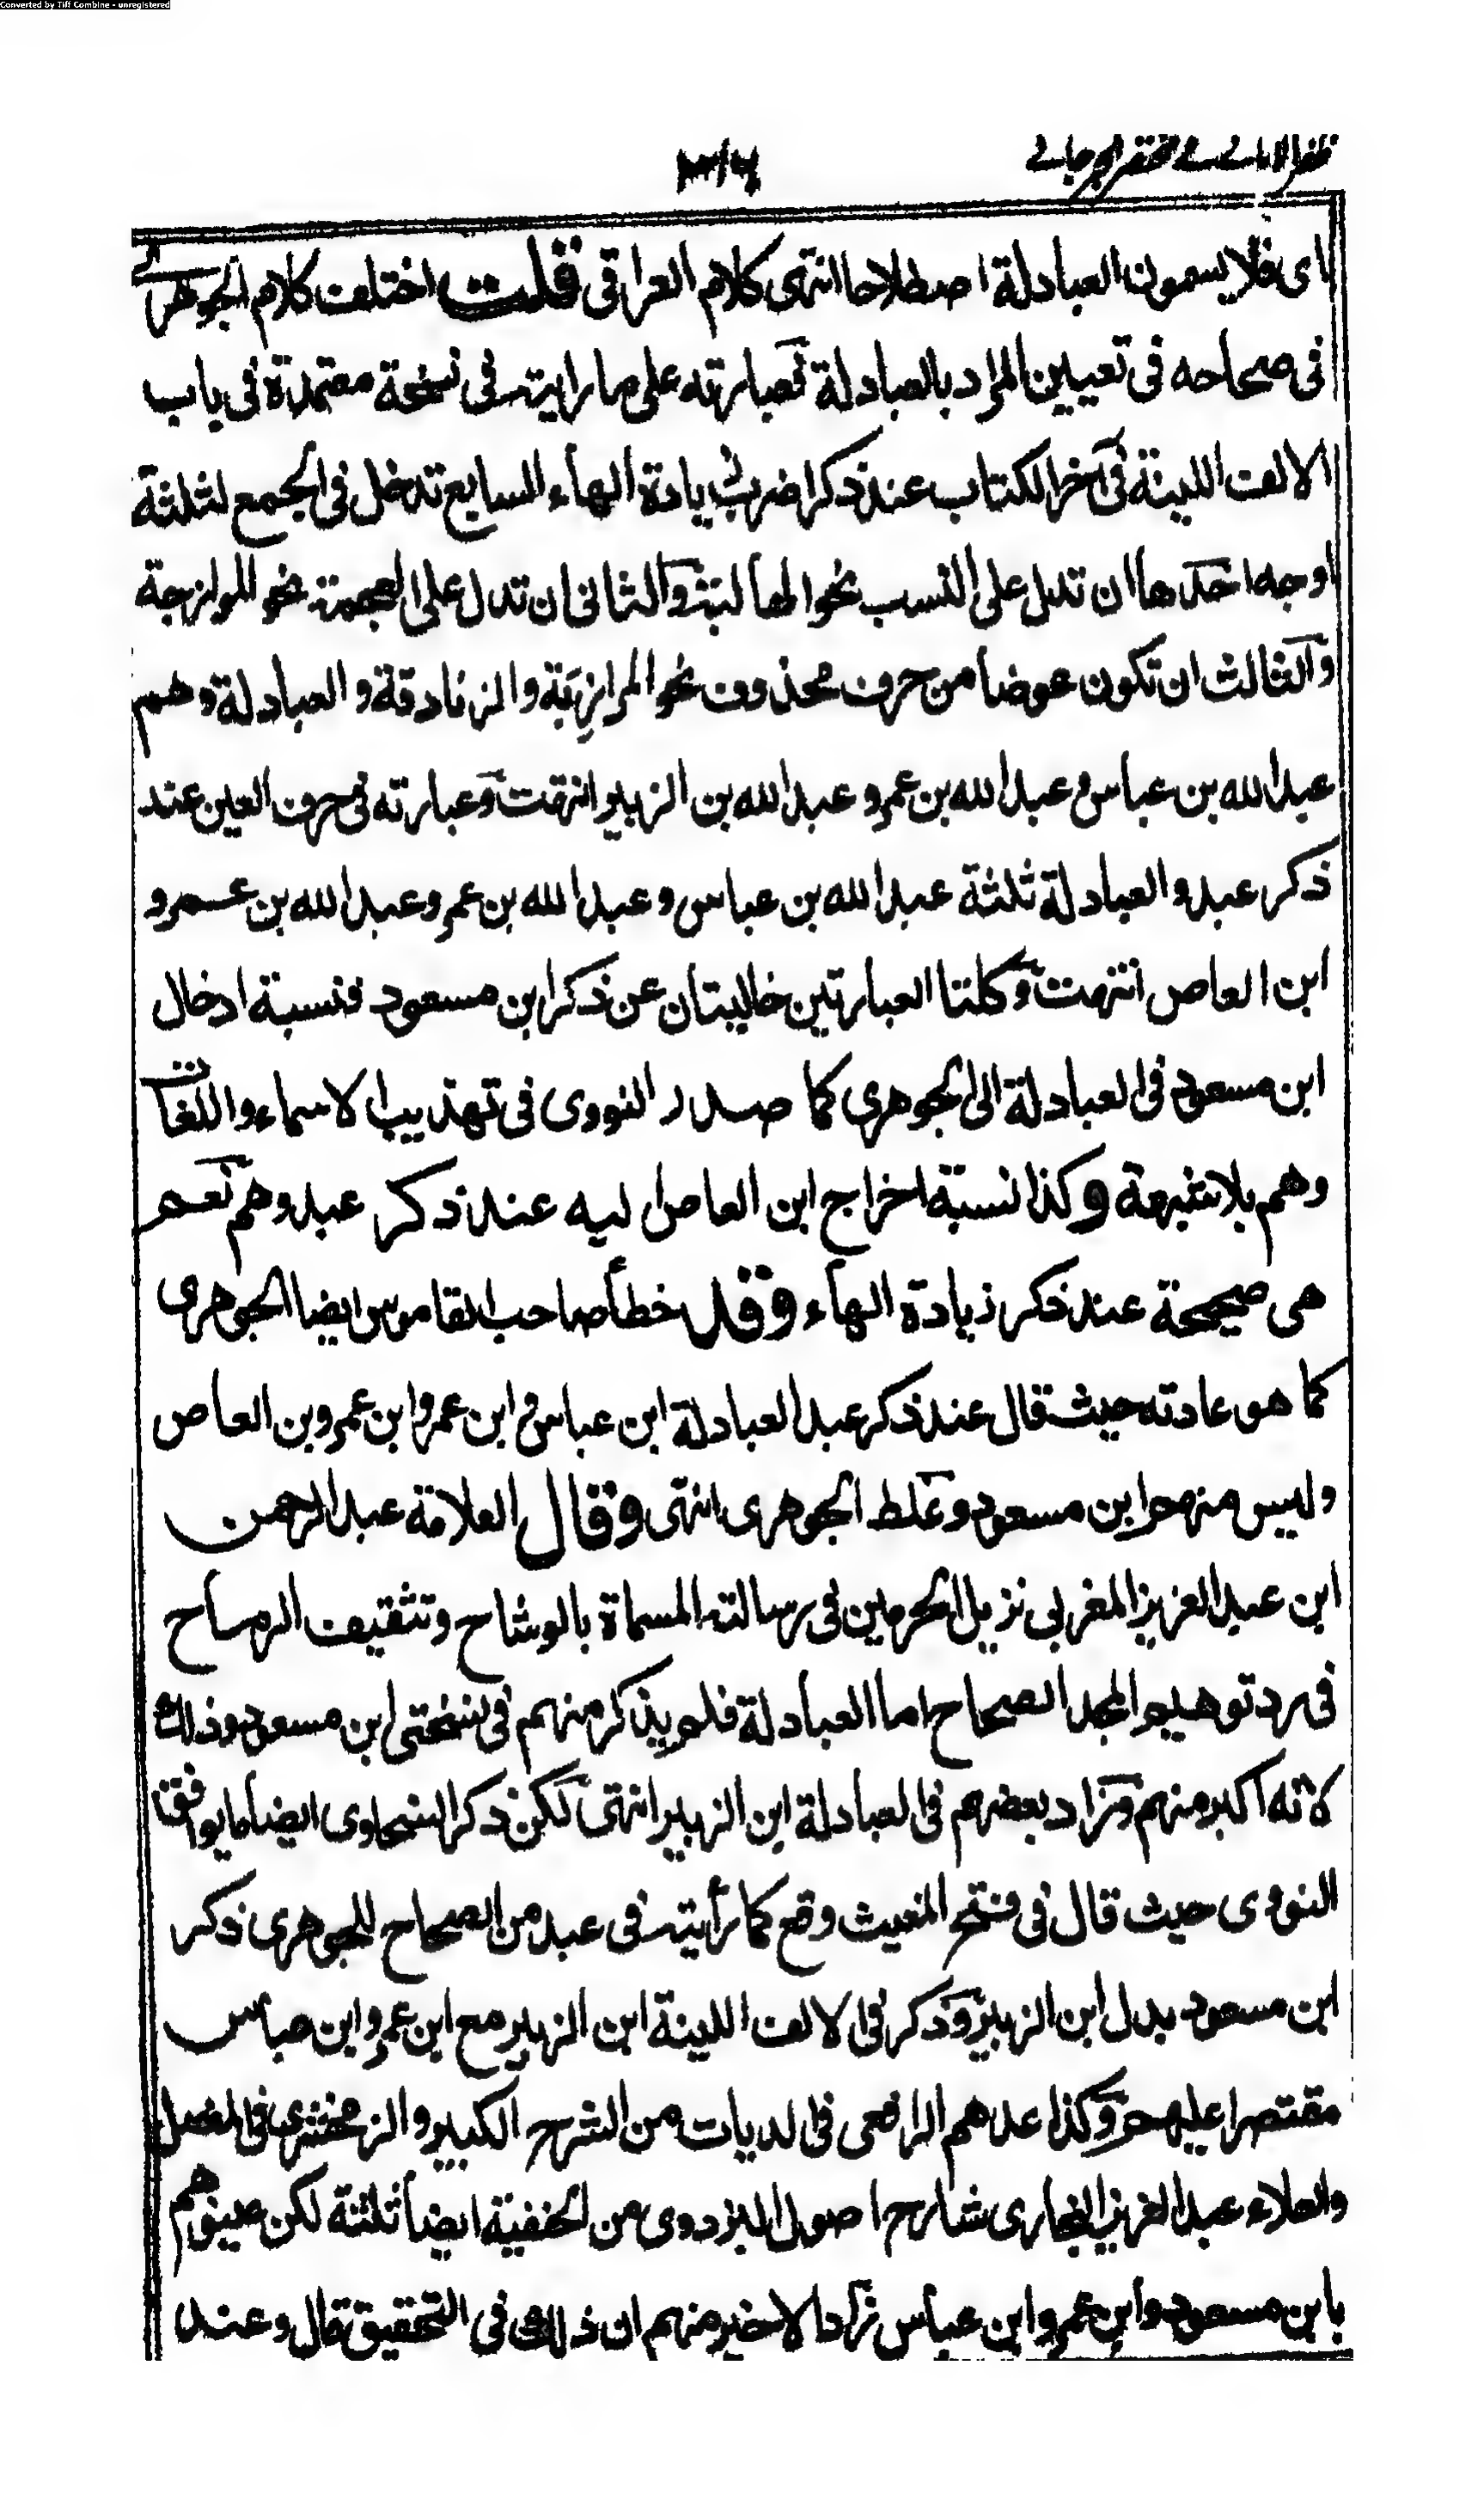 Converted by Tiff Combine - unregistered
ظفر الامانے فے مختصر الجرجانے
اى فلا يسمون العبادلة اصطلاحا انتهى كلام العراقى قلت اختلف كلام الجوهرى
فى صحاحه فى تعيين المراد بالعبادلة فعبارته على ما رايته فى نسخة معتمدة فى باب
الالف اللينة فى آخر الكتاب عند ذكر اضرب زيادة الهاء السابع تدخل فى الجمع لثلثة
اوجه احدها ان تدل على النسب نحو المهالبة والثانى ان تدل على العجمة نحو الموازجة
والثالث ان تكون عوضا من حرف محذوف نحو المرازبة والزنادقة والعبادلة وهم
عبد الله بن عباس وعبد الله بن عمر وعبد الله بن الزبير انتهت وعبارته فى حرف العين عند
ذكر عبد والعبادلة ثلثة عبد الله بن عباس وعبد الله بن عمر وعبد الله بن عمرو
ابن العاص انتهت وكلتا العبارتين خاليتان عن ذكر ابن مسعود فنسبة ادخال
ابن مسعود فى العبادلة الى الجوهرى كما صدر النووى فى تهذيب الاسماء واللغات
وهم بلا شبهة وكذا نسبة اخراج ابن العاص اليه عند ذكر عبد وهم نعم
هى صحيحة عند ذكر زيادة الهاء وقد خطأ صاحب القاموس ايضا الجوهرى
كما هو عادته حيث قال عند ذكر عبد العبادلة ابن عباس وابن عمر وابن عمرو بن العاص
وليس منهم ابن مسعود وغلط الجوهرى انتهى وقال العلامة عبد الرحمن
ابن عبد العزيز المغربى نزيل الحرمين فى رسالته المسماة بالوشاح وتثقيف الرماح
فى رد توهيم المجد الصحاح اما العبادلة فلم يذكر منهم فى نسختى ابن مسعود وذلك
لانه اكبر منهم وزاد بعضهم فى العبادلة ابن الزبير انتهى لكن ذكر السخاوى ايضا ما يوافق
النووى حيث قال فى فتح المغيث وقع كما رأيته فى عبد من الصحاح للجوهرى ذكر
ابن مسعود بدل ابن الزبير وذكر فى الالف اللينة ابن الزبير مع ابن عمر وابن عباس
مقتصرا عليهم وكذا عدهم الرافعى فى الديات من الشرح الكبير والزمخشرى فى المفصل
والعلاء عبد العزيز البخارى شارح اصول البزدوى من الحنفية ايضا ثلثة لكن عينوهم
بابن مسعود وابن عمر وابن عباس زاد الاخير منهم ان ذلك فى التحقيق قال وعند